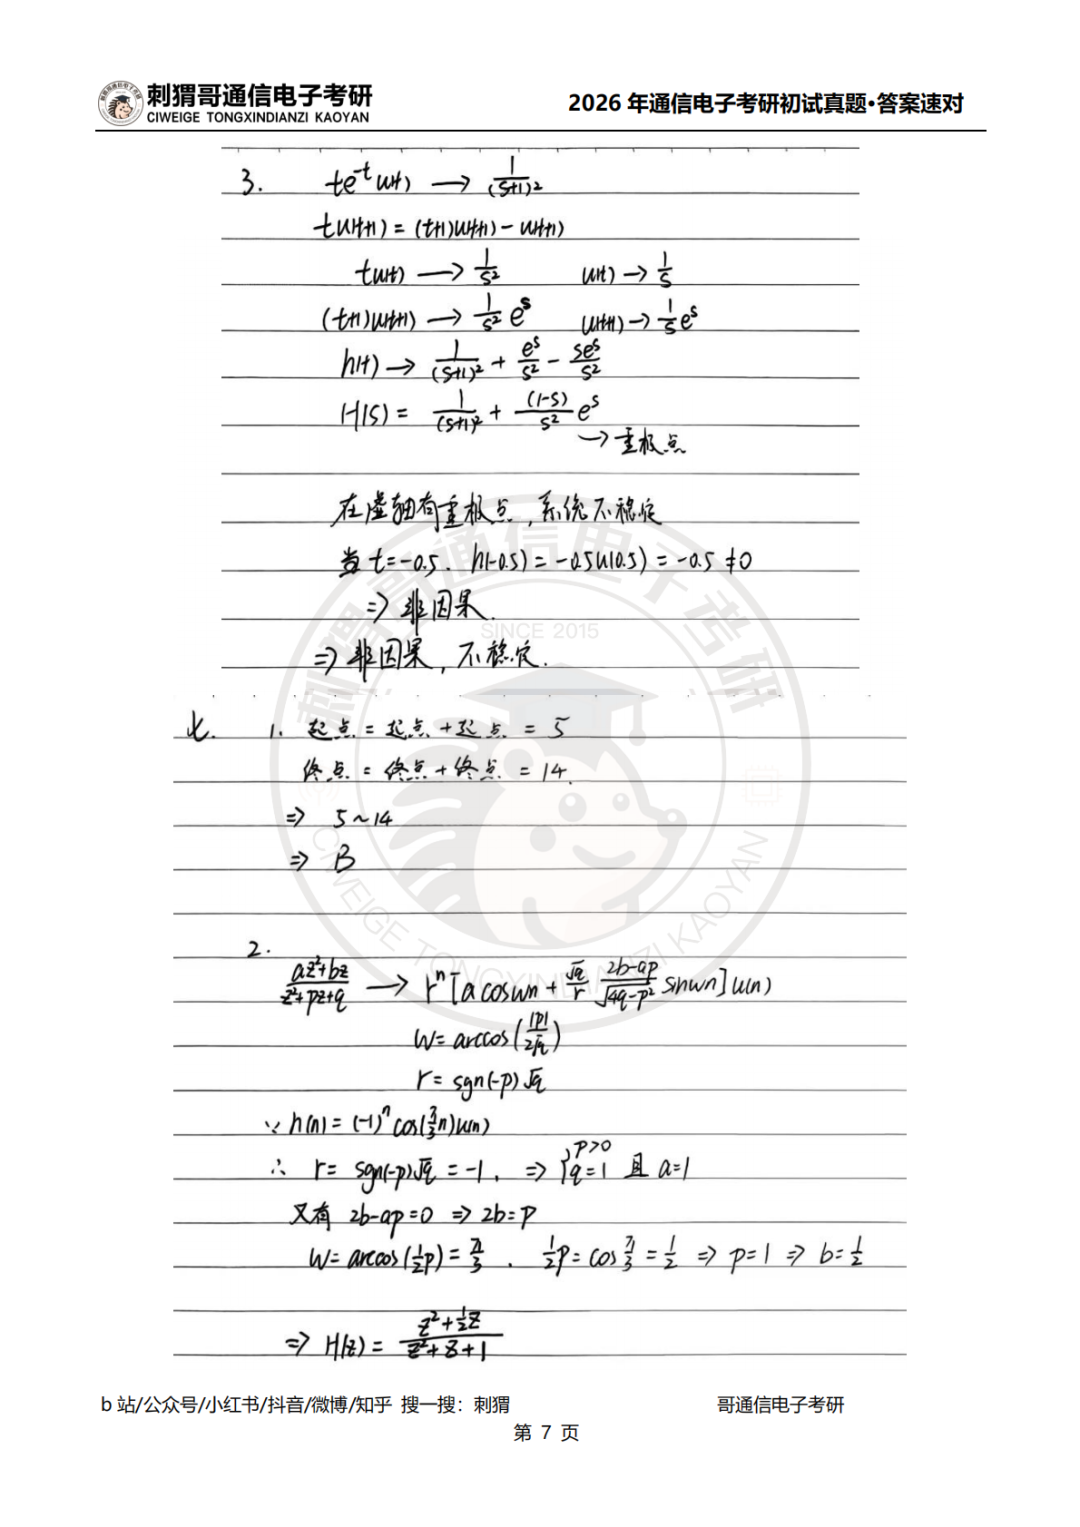 刺猬哥通信电子考研
CIWEIGE TONGXINDIANZI KAOYAN
2026 年通信电子考研初试真题•答案速对
3. te^{-t}u(t) → 1/(s+1)^2
tu(t+1) = (t+1)u(t+1) - u(t+1)
tu(t) → 1/s^2    u(t) → 1/s
(t+1)u(t+1) → 1/s^2 e^s    u(t+1) → 1/s e^s
h(t) → 1/(s+1)^2 + e^s/s^2 - se^s/s^2
H(s) = 1/(s+1)^2 + (1-s)/s^2 e^s
→ 重极点
在虚轴有重极点, 系统不稳定
当 t=-0.5. h(-0.5) = -0.5u(0.5) = -0.5 ≠0
⇒ 非因果.
⇒ 非因果, 不稳定.
七. 1. 起点 = 起点 + 起点 = 5
终点 = 终点 + 终点 = 14.
⇒ 5~14
⇒ B
2.
(az^2+bz)/(z^2+pz+q) → r^n [a cos wn + √q/r (2b-ap)/√(4q-p^2) sin wn] u(n)
w = arccos(|p|/2√q)
r = sgn(-p)√q
∵ h(n) = (-1)^n cos(π/3 n)u(n)
∴ r = sgn(-p)√q = -1. ⇒ {p>0 q=1 且 a=1
又有 2b-ap=0 ⇒ 2b=p
w = arccos(1/2 p) = π/3 . 1/2 p = cos π/3 = 1/2 ⇒ p=1 ⇒ b=1/2
⇒ H(z) = (z^2+1/2 z)/(z^2+z+1)
刺猬哥通信电子考研
SINCE 2015
CIWEIGE TONGXINDIANZI KAOYAN
b 站/公众号/小红书/抖音/微博/知乎 搜一搜：刺猬
哥通信电子考研
第 7 页